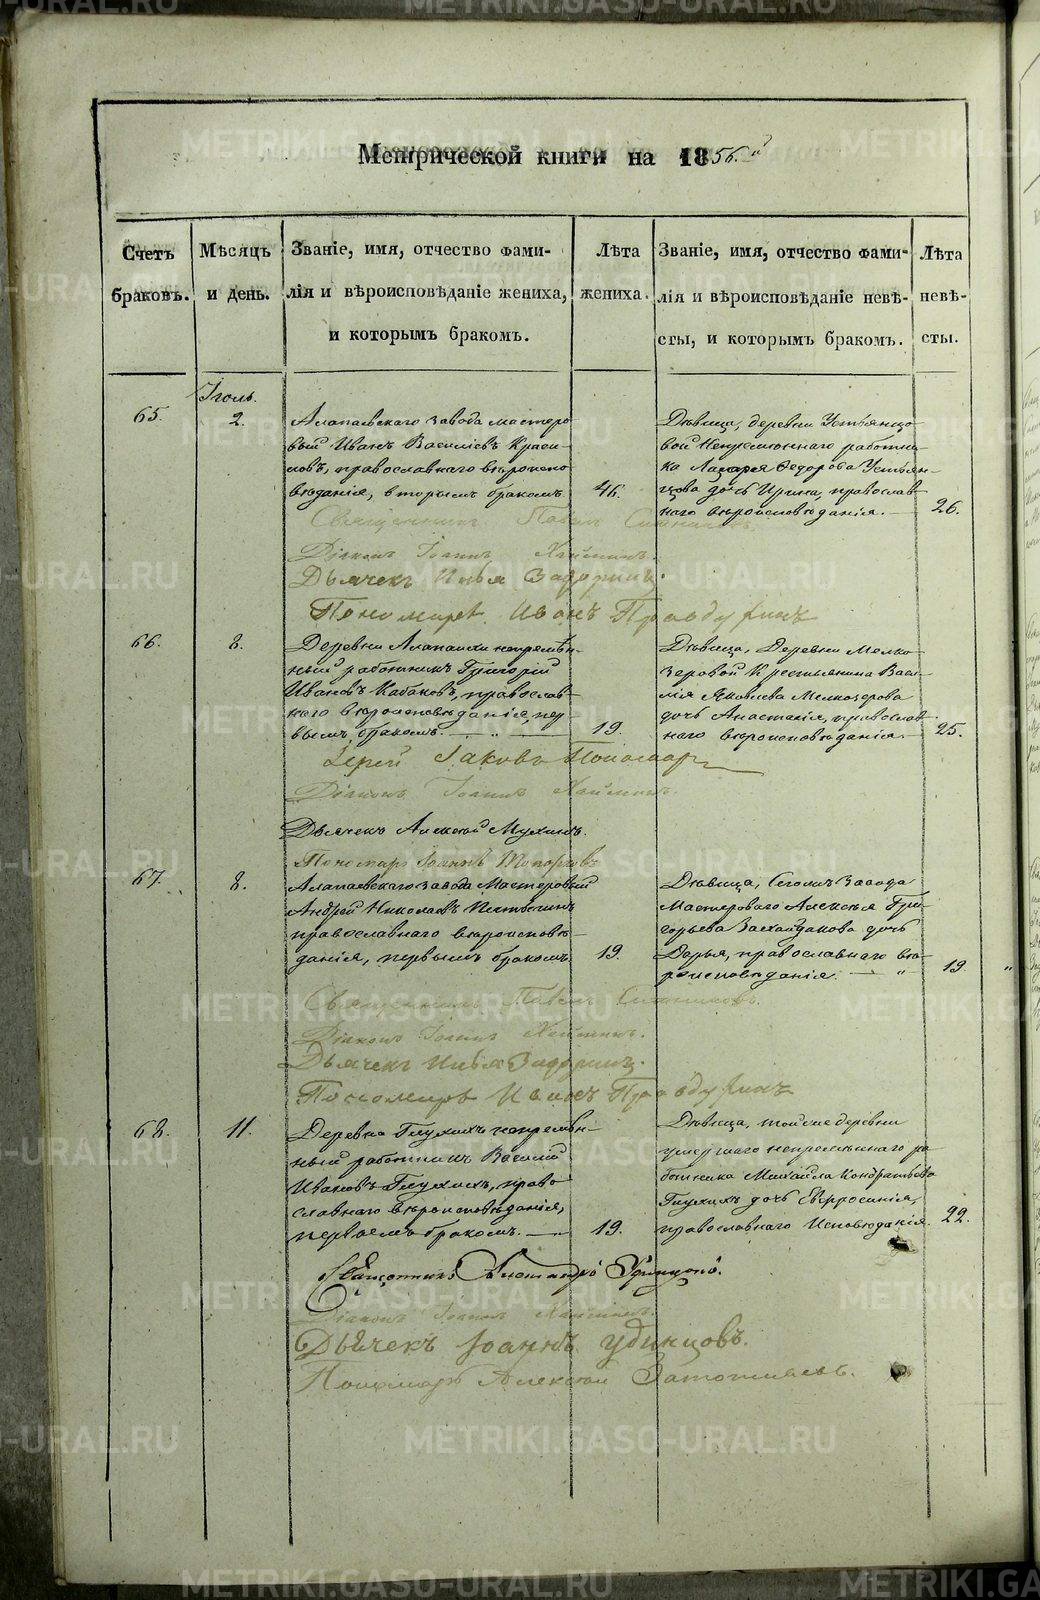 Метрической книги на 1856.й
Счетъ браковъ.
Мѣсяцъ и день.
Званіе, имя, отчество фами-
лія и вѣроисповѣданіе жениха,
и которымъ бракомъ.
Лѣта жениха.
Званіе, имя, отчество фами-
лія и вѣроисповѣданіе невѣ-
сты, и которымъ бракомъ.
Лѣта невѣ-
сты.
65.
2.
Алапаевскаго завода мастеро-
вый Иванъ Василіевъ
православнаго вѣроиспо-
вѣданія, вторымъ бракомъ
46.
Дѣвица, деревни Устьянцо-
вой Непремѣннаго работни-
ка Лазаря Ѳедорова Устьян-
цова дочь Ирина, православ-
наго вѣроисповѣданія.
26.
Священникъ Павелъ
Діаконъ Іоаннъ
Дьячекъ Илья Задоринъ.
Пономарь Иванъ
66.
8.
Деревни Алапаихи непремѣн-
ный работникъ Григорій
Ивановъ Кабаковъ, православ-
наго вѣроисповѣданія, пер-
вымъ бракомъ.
19.
Дѣвица, Деревни Мелко-
зеровой Крестьянина Васи-
лія Яковлева Мелкозерова
дочь Анастасія, православ-
наго вѣроисповѣданія.
25.
Іерей Іаковъ Пономар
Діаконъ Іоаннъ
Дьячекъ Алексѣй Мухинъ.
Пономарь Іоаннъ Топорковъ
67.
8.
Алапаевскаго завода Мастеровый
Андрей Николаевъ
православнаго вѣроисповѣ-
данія, первымъ бракомъ
19.
Дѣвица, Сегоже Завода
Мастероваго Алексѣя Гри-
горьева дочь
Дарья, православнаго вѣ-
роисповѣданія. — "
19
Священникъ Павелъ
Діаконъ Іоаннъ
Дьячекъ Илья Задоринъ.
Пономарь Иванъ
68.
11.
Деревни Глухихъ непремѣн-
ный работникъ Василій
Ивановъ Глухихъ, право-
славнаго вѣроисповѣданія,
первымъ бракомъ.
19.
Дѣвица, тойже деревни
умершаго непремѣннаго ра-
ботника Михайла Кондратьева
Глухихъ дочь Евфросинія,
православнаго Исповѣданія.
22.
Священникъ Александръ Удинцовъ.
Діаконъ Іоаннъ
Дьячекъ Іоаннъ Удинцовъ.
Пономарь Алексѣй
METRIKI.GASO-URAL.RU